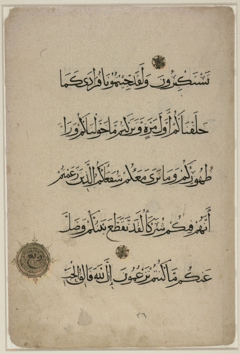 تستكبرون ولقد جئتمونا فرادى كما
خلقناكم أول مرة وتركتم ما خولناكم ورا
ظهوركم وما نرى معكم شفعاكم الذين زعمتم
أنهم فيكم شركا لقد تقطع بينكم وضل
عنكم ما كنتم تزعمون إن الله فالق الحب